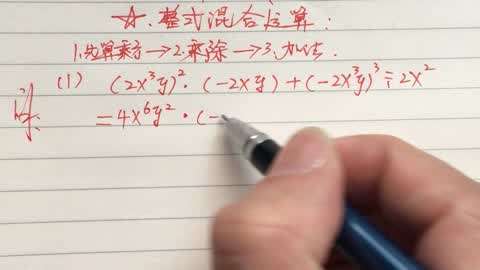 ☆.整式混合运算:
1.先算乘方→2.乘除→3.加法.
(1) (2x³y)²·(-2xy)+(-2x³y)³÷2x²
解: =4x⁶y²·(-